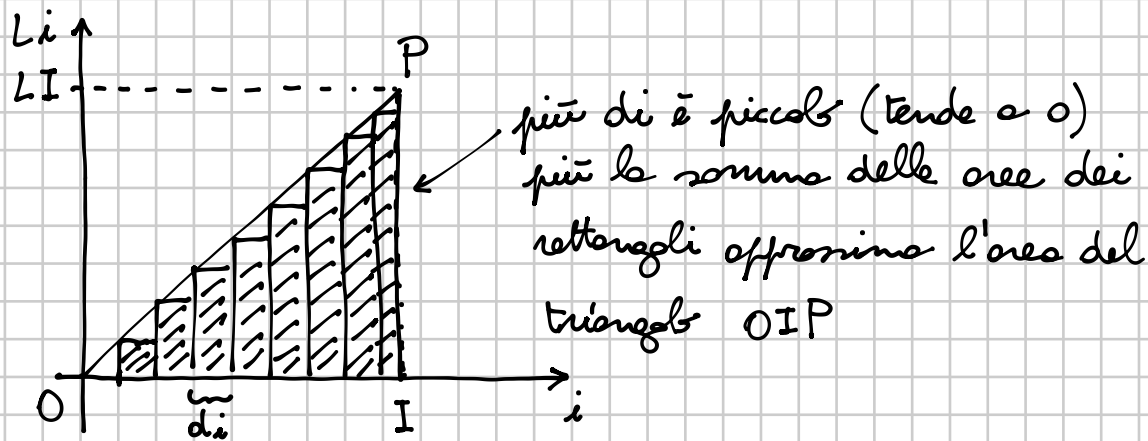 Li
LI
P
più di è piccolo (tende a 0)
più la somma delle aree dei
rettangoli approssima l'area del
triangolo OIP
O
di
I
i